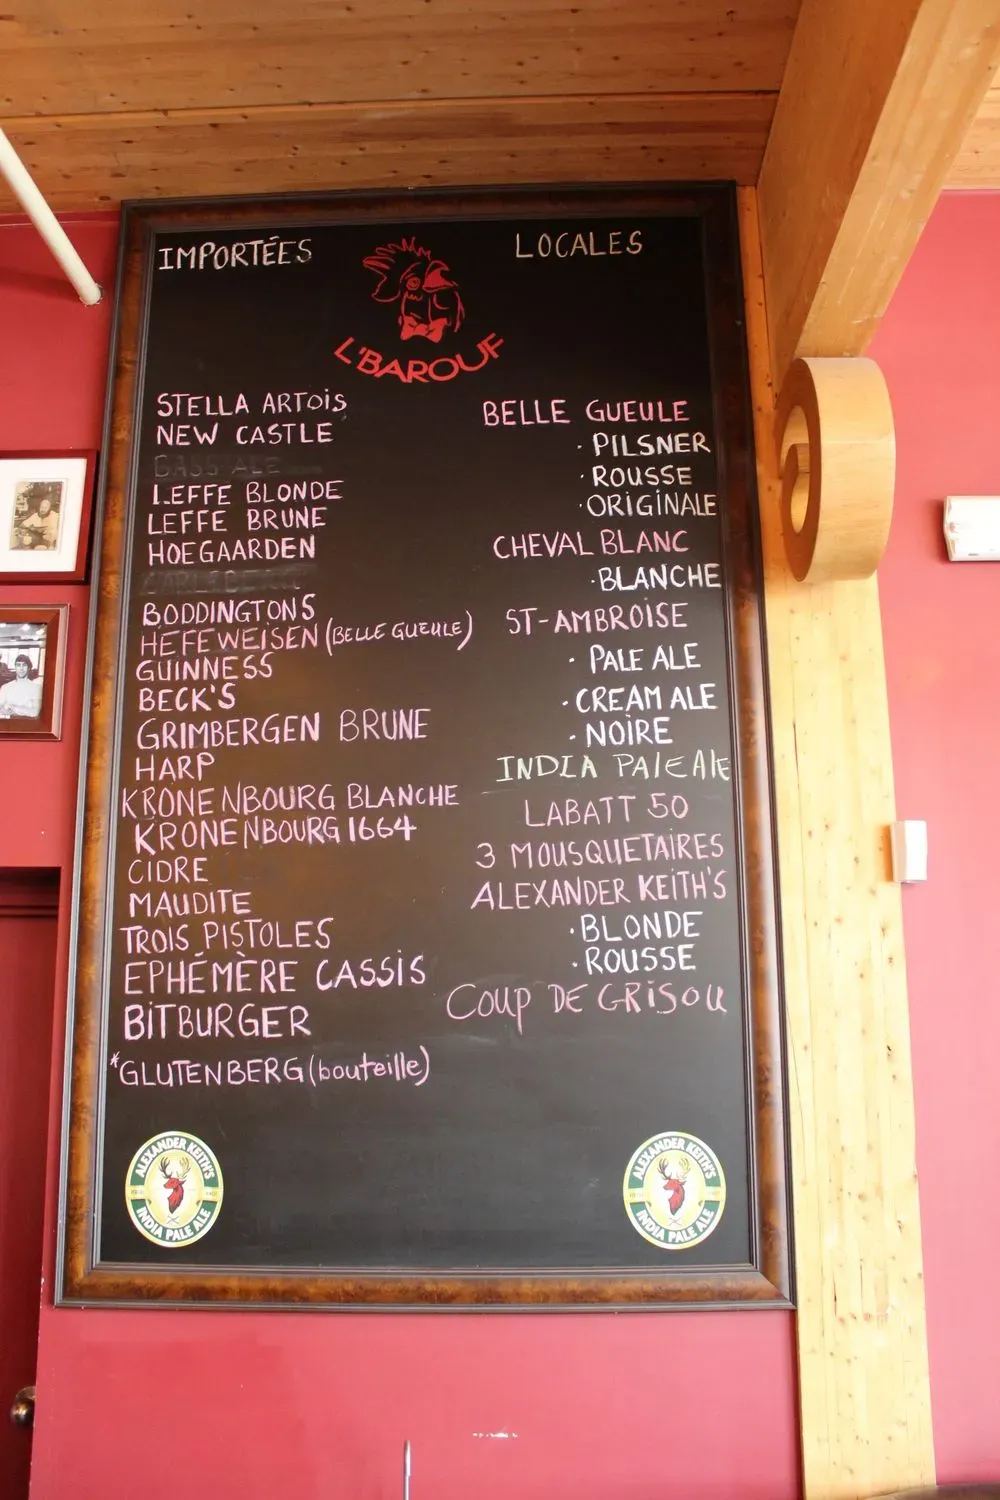 IMPORTÉES
LOCALES
L'BAROUF
STELLA ARTOIS
NEW CASTLE
BASS ALE
LEFFE BLONDE
LEFFE BRUNE
HOEGAARDEN
CARLSBERG
BODDINGTONS
HEFEWEISEN (BELLE GUEULE)
GUINNESS
BECK'S
GRIMBERGEN BRUNE
HARP
KRONENBOURG BLANCHE
KRONENBOURG 1664
CIDRE
MAUDITE
TROIS PISTOLES
EPHÉMÈRE CASSIS
BITBURGER
*GLUTENBERG (bouteille)
BELLE GUEULE
· PILSNER
· ROUSSE
· ORIGINALE
CHEVAL BLANC
· BLANCHE
ST-AMBROISE
· PALE ALE
· CREAM ALE
· NOIRE
INDIA PALE Ale
LABATT 50
3 MOUSQUETAIRES
ALEXANDER KEITH'S
· BLONDE
· ROUSSE
COUP DE GRISOU
ALEXANDER KEITH'S
INDIA PALE ALE
ALEXANDER KEITH'S
INDIA PALE ALE